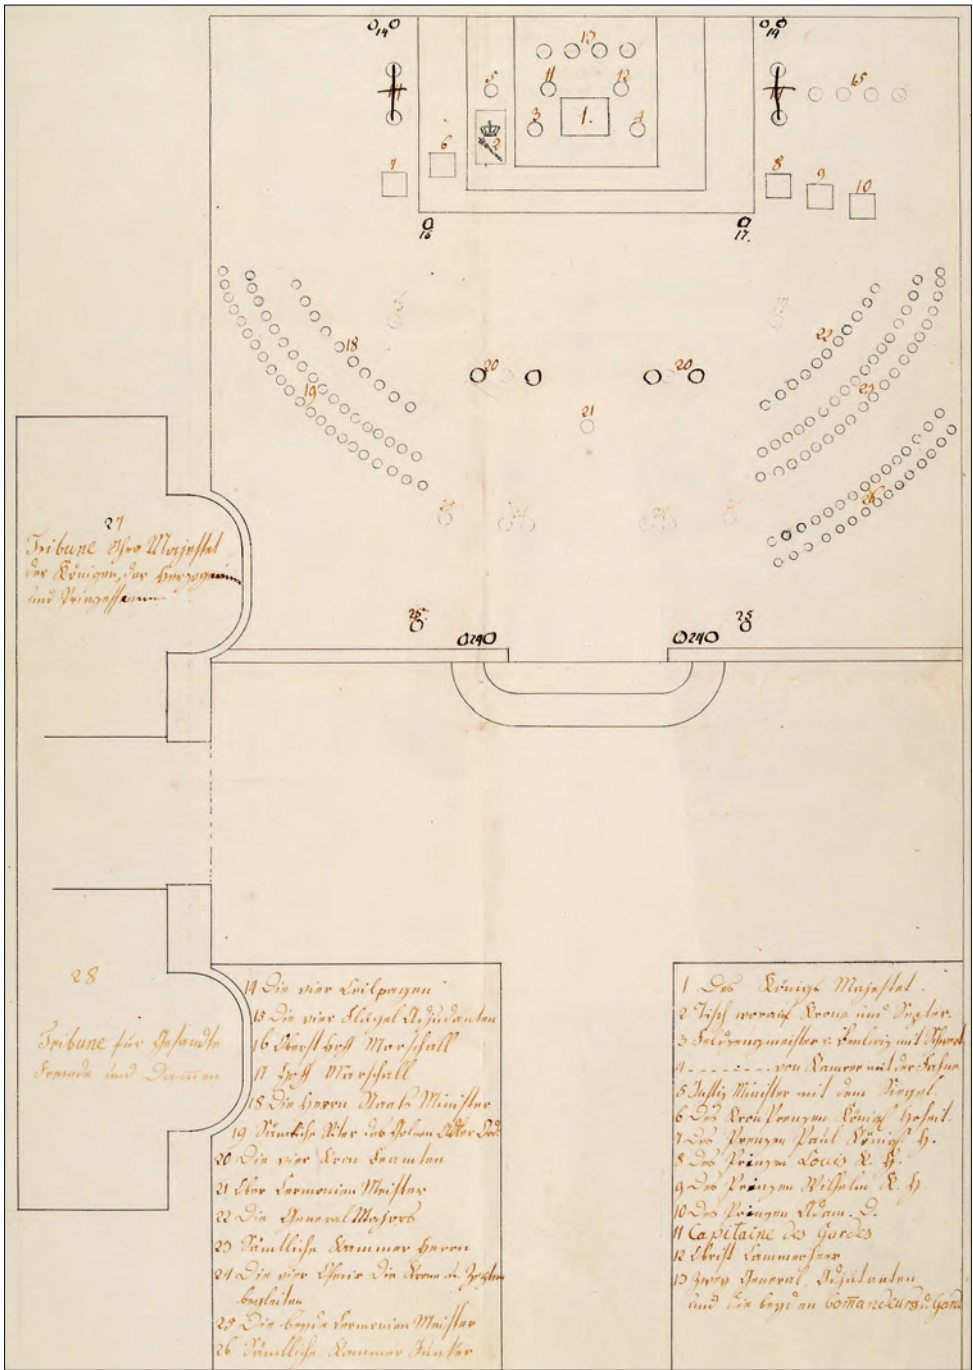 14 14
13
5 11 12 65
14 14
3 1. 4
6 2
7 8 9 10
16 17.
18 22
20 20
19 21 23
26
27
Tribune Ihro Majestet
der Königin, der Herzoginn
und Prinzessinnen
25 25
24 24
28
Tribune für Gesandte
Fremde und Damen
14 Die vier Leibpagen
15 Die vier Flügel Adjudanten
16 Oberst Hoff Marschall
17 Hoff Marschall
18 Die Herrn Staats Minister
19 Sämtliche Riter des Adler
20 Die vier Kron Beamten
21 Ober Cermonien Meister
22 Die General Majors
23 Sämtliche Kammer Herrn
24 Die vier die Krone u. Zepter
begleiten
25 Die beyde Cermonien Meister
26 Sämtliche Kammer Junker
1 Des Königs Majestet.
2 Tisch worauf Krone und Septer.
3 Feldzeugmeister v. mit Schwert
4 - - - - - - - von mit der Fahne
5 Justiz Minister mit dem Siegel.
6 Des KronPrinzen Königl Hoheit.
7 Des Prinzen Paul Königl H.
8 Des Prinzen Louis K. H.
9 Des Prinzen Wilhelm K. H
10 Des Prinzen Adam. D.
11 Capitaine des Gardes
12 Obrist Cammerherr
13 Zwey General Adjutanten
und die beyden Com̅andeurs d. Gard